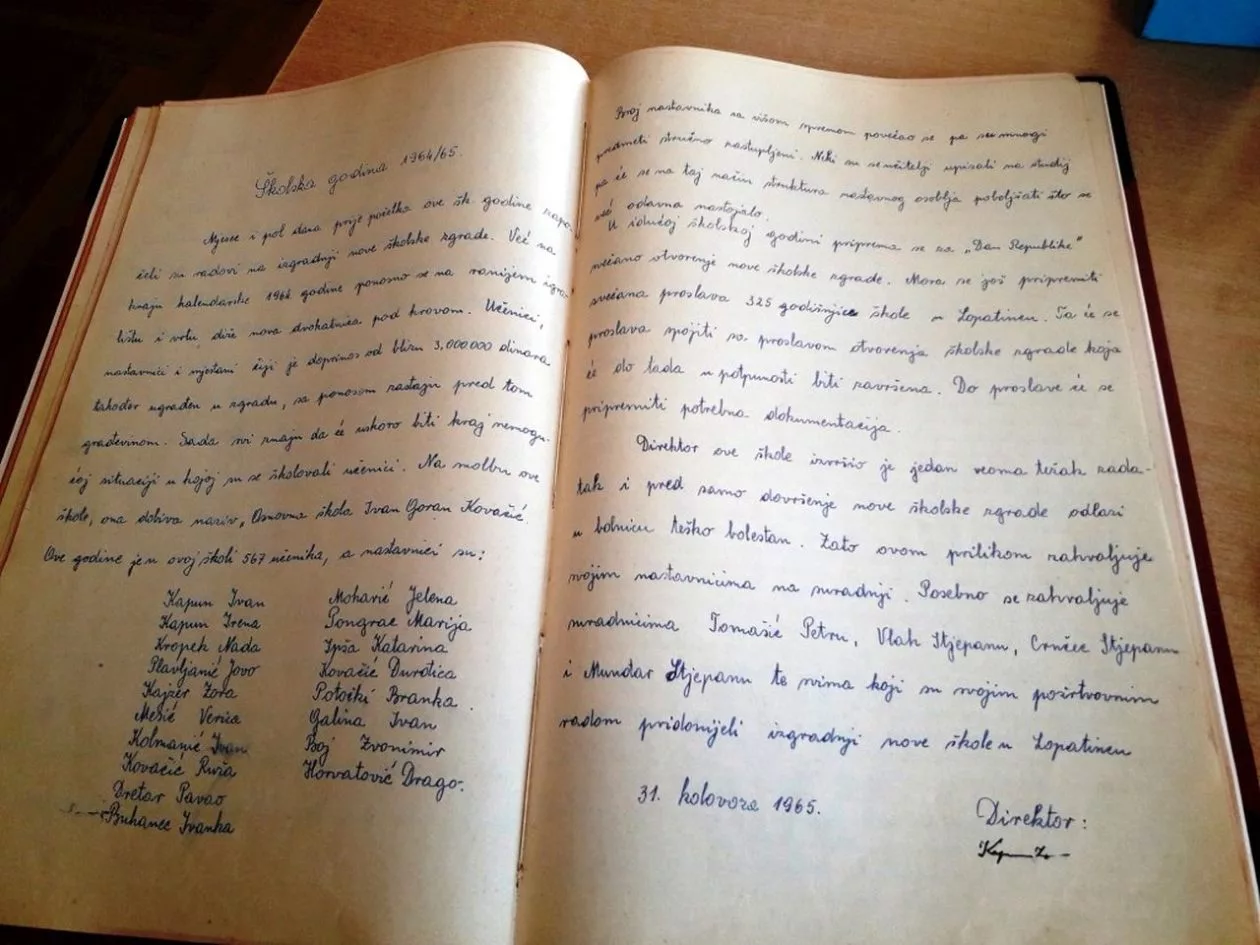 Školska godina 1964/65.
Mjesec i pol dana prije početka ove šk. godine zapo-
čeli su radovi na izgradnji nove školske zgrade. Već na
kraju kalendarske 1964 godine ponosno se na ranijem igra-
lištu i vrtu diže nova dvokatnica pod krovom. Učenici,
nastavnici i mještani čiji je doprinos od blizu 3,000.000 dinara
također ugrađen u zgradu, sa ponosom zastaju pred tom
građevinom. Sada svi znaju da će uskoro biti kraj nemogu-
ćoj situaciji u kojoj su se školovali učenici. Na molbu ove
škole, ona dobiva naziv „Osnovna škola Ivan Goran Kovačić.
Ove godine je u ovoj školi 567 učenika, a nastavnici su:
Kapun Ivan
Kapun Irena
Kropek Nada
Plavljanić Jovo
Kajzer Zora
Mesić Verica
Kolmanić Ivan
Kovačić Ruža
Dretar Pavao
Buhanec Ivanka
Moharić Jelena
Pongrac Marija
Ipša Katarina
Kovačić Đurđica
Potočki Branka
Galina Ivan
Boj Zvonimir
Horvatović Drago.
Broj nastavnika sa višom spremom povećao se pa su mnogi
predmeti stručno zastupljeni. Neki su se učitelji upisali na studij
pa će se na taj način struktura nastavnog osoblja poboljšati što se
već odavna nastojalo.
U idućoj školskoj godini priprema se za „Dan Republike"
svečano otvorenje nove školske zgrade. Mora se još pripremiti
svečana proslava 325 godišnjice škole u Lopatincu. Ta će se
proslava spojiti sa proslavom otvorenja školske zgrade koja
će do tada u potpunosti biti završena. Do proslave će se
pripremiti potrebna dokumentacija.
Direktor ove škole izvršio je jedan veoma težak zada-
tak i pred samo dovršenje nove školske zgrade odlazi
u bolnicu teško bolestan. Zato ovom prilikom zahvaljuje
svojim nastavnicima na suradnji. Posebno se zahvaljuje
suradnicima Tomašić Petru, Vlah Stjepanu, Crnčec Stjepanu
i Mundar Stjepanu te svima koji su svojim požrtvovnim
radom pridonijeli izgradnji nove škole u Lopatincu
31. kolovoza 1965.
Direktor: